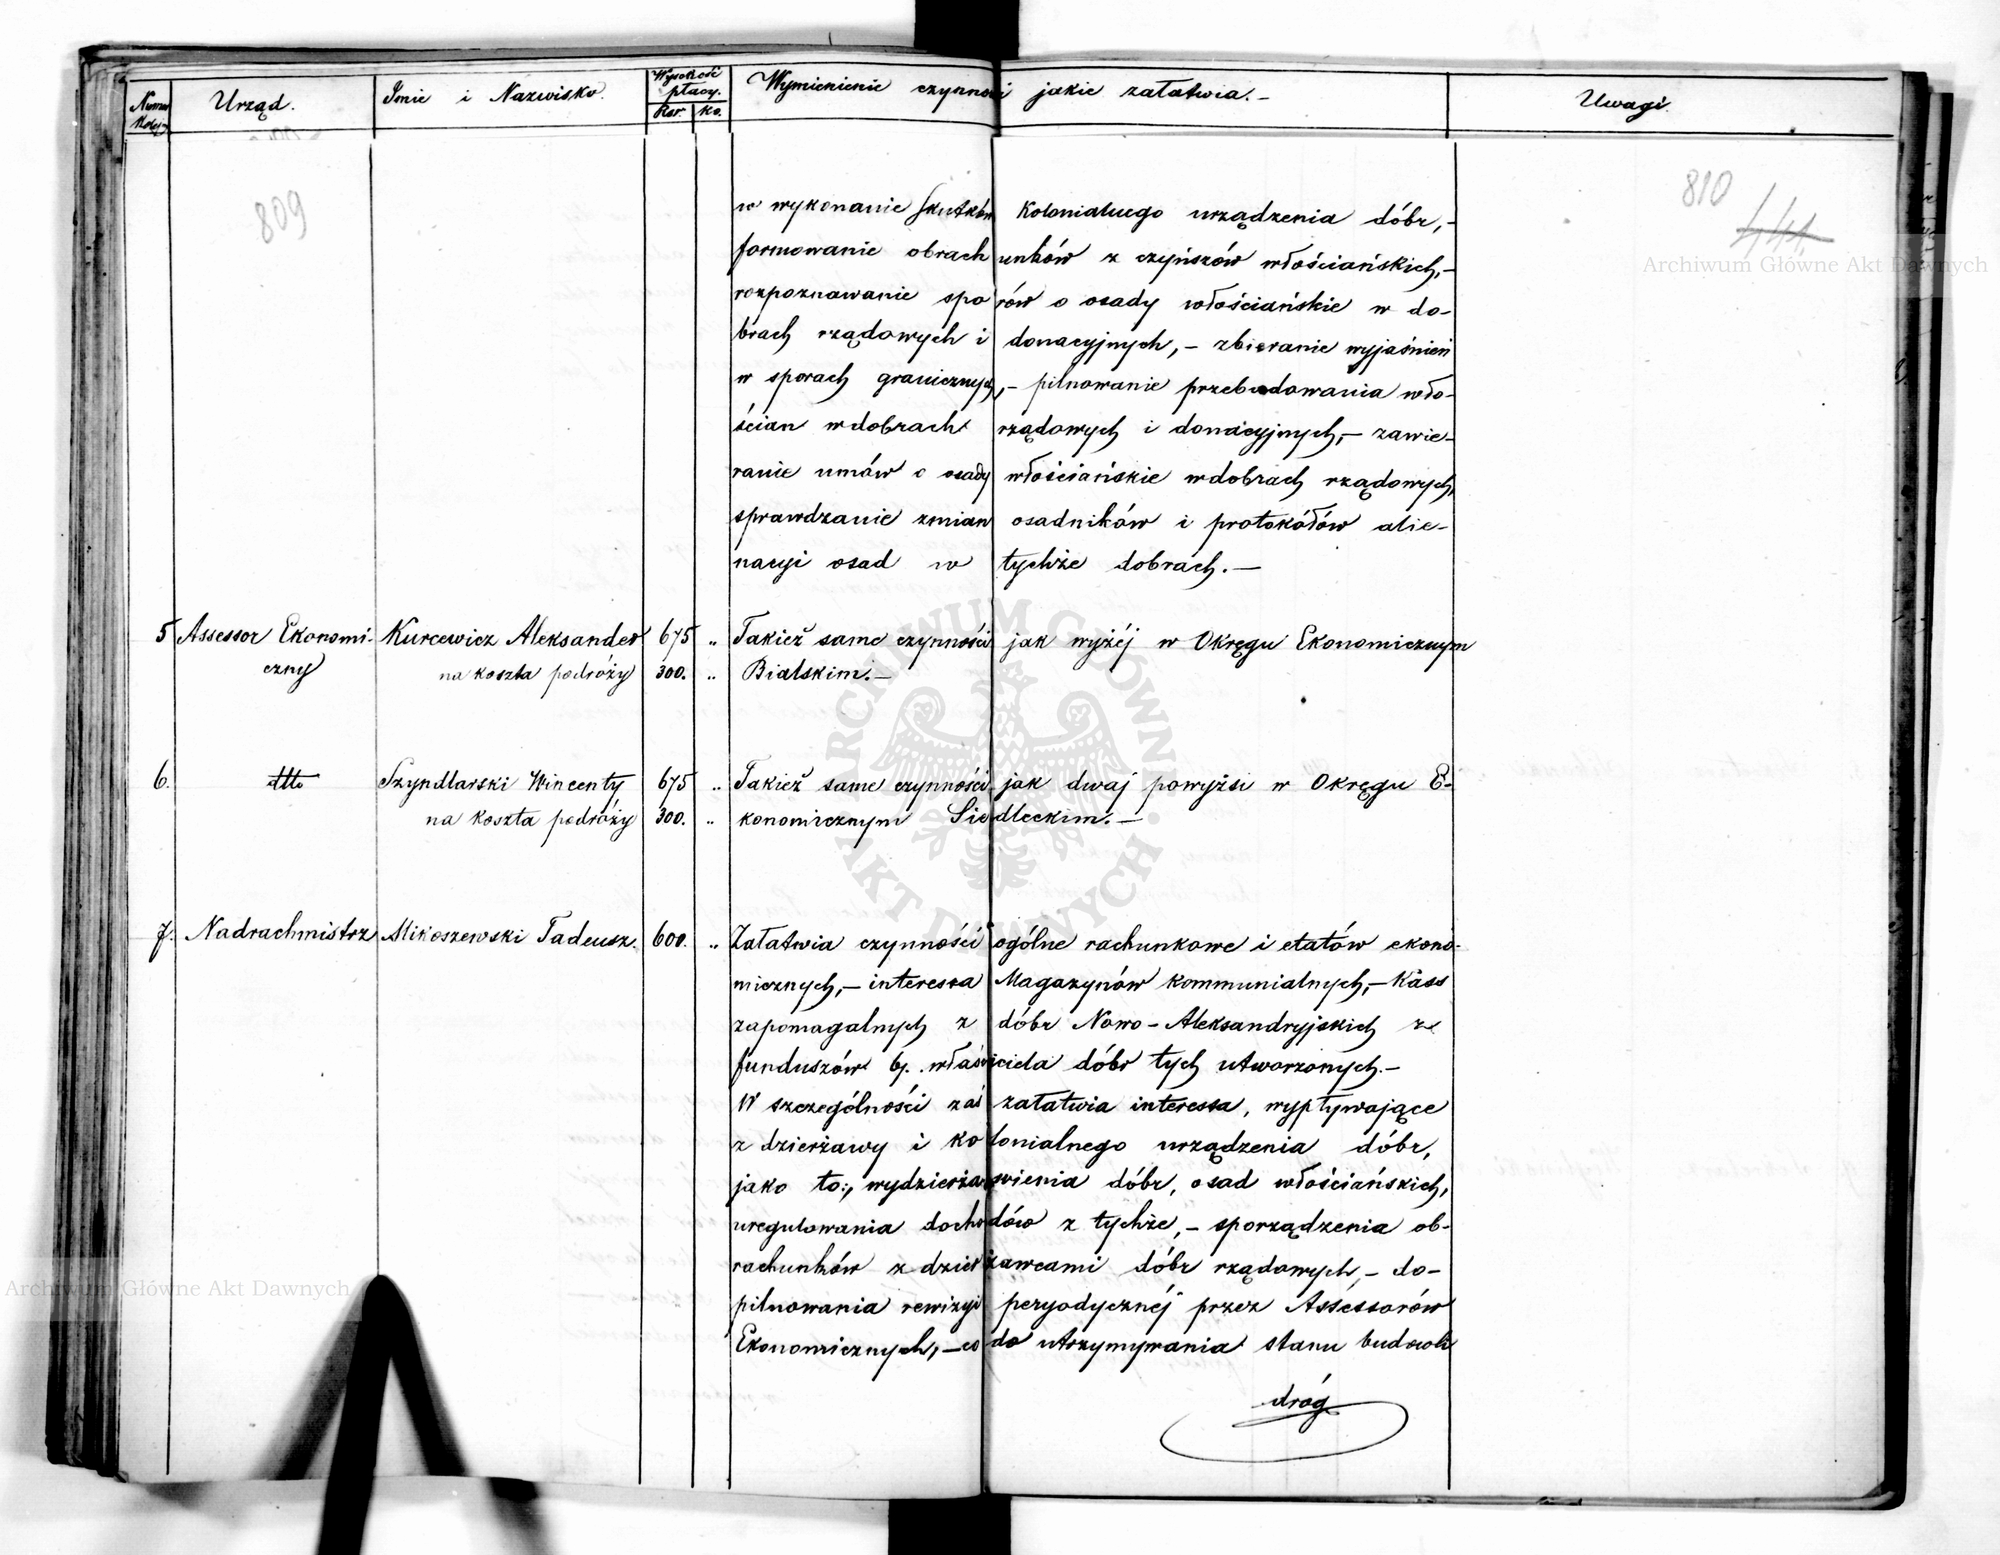 Numer Kolejny
Urząd.
Imie i Nazwisko.
Wysokość płacy.
Rsr. ko.
Wymienienie czynności jakie załatwia.-
Uwagi.
809
810
441.
w wykonanie skutków Kolonialnego urządzenia dóbr,-
formowanie obrachunków z czynszów włościańskich,-
rozpoznawanie sporów o osady włościańskie w do-
brach rządowych i donacyjnych,- zbieranie wyjaśnień
w sporach granicznych,- pilnowanie przebudowania wło-
ścian w dobrach rządowych i donacyjnych,- zawie-
ranie umów o osady włościańskie w dobrach rządowych,
sprawdzanie zmian osadników i protokółów alie-
nacyi osad w tychże dobrach.-
5 Assessor Ekonomi- Kurcewicz Aleksander 675 " Takież same czynności jak wyżéj w Okręgu Ekonomicznym
czny na koszta podróży 300. " Bialskim.-
6. dtto Szyndlarski Wincenty 675 " Takież same czynności jak dwaj powyżsi w Okręgu E-
na koszta podróży 300. " konomicznym Siedleckim.-
7. Nadrachmistrz Mikoszewski Tadeusz. 600. " Załatwia czynności ogólne rachunkowe i etatów ekono-
micznych,- interessa Magazynów kommunialnych,- Kass
zapomagalnych z dóbr Nowo-Aleksandryjskich z
funduszów b. właściciela dóbr tych utworzonych.-
W szczególności zaś załatwia interessa, wypływające
z dzierżawy i kolonialnego urządzenia dóbr,
jako to:, wydzierżawienia dóbr, osad włościańskich,
uregulowania dochodów z tychże,- sporządzenia ob-
rachunków z dzierżawcami dóbr rządowych,- do-
pilnowania rewizyi peryodycznéj przez Assessorów
Ekonomicznych,- co do utrzymywania stanu budowli
dróg
Archiwum Główne Akt Dawnych
Archiwum Główne Akt Dawnych
ARCHIWUM GŁÓWNE AKT DAWNYCH